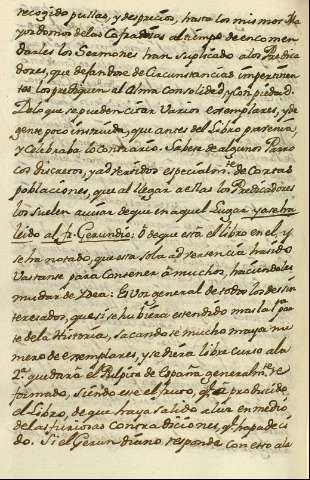 recogido pullas, y desprecios, hasta los mismos Ma
yordomos de las Cofradias al tiempo de encomen
darles los Sermones han suplicado a los Predica
dores, que dejandose de Circunstancias impertinen
tes les prediquen al Alma con solidez y con piedad.
De lo que se pueden citar varios exemplares, y de
gente poco instruida, que antes del Libro pretendia,
y celebraba lo contrario. Sabese de algunos Parro
cos discretos, y advertidos especialmte. de cortas
poblaciones, que al llegar a ellas los Predicadores
los suelen avisar de que en aquel Lugar ya se ha
leido al fr. Gerundio; ò de que està el libro en el, y
se ha notado, que esta sola advertencia ha sido
bastante para contener à muchos, haciendoles
mudar de Idea: Es voz general de todos los desin
teresados, que si se hubiera estendido mas la 1ª. par
te de la Historia, sacandose mucho mayor nu
mero de exemplares, y se diera libre curso a la
2ª. quedarà el Pulpito de España generalmte. re
formado, siendo ese el fruto, qe. ha producido
el Libro, de que haya salido a luz en medio
de las furiosas contradiciones, qe. ha padeci
do. Si el Gerundiano responde con esto a la